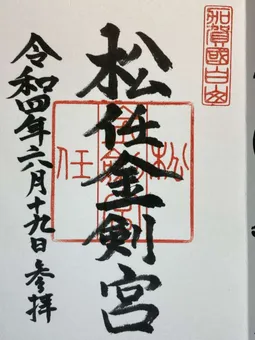 加賀國白山
松任金剣宮
松任
金剣宮
令和四年六月十九日参拝